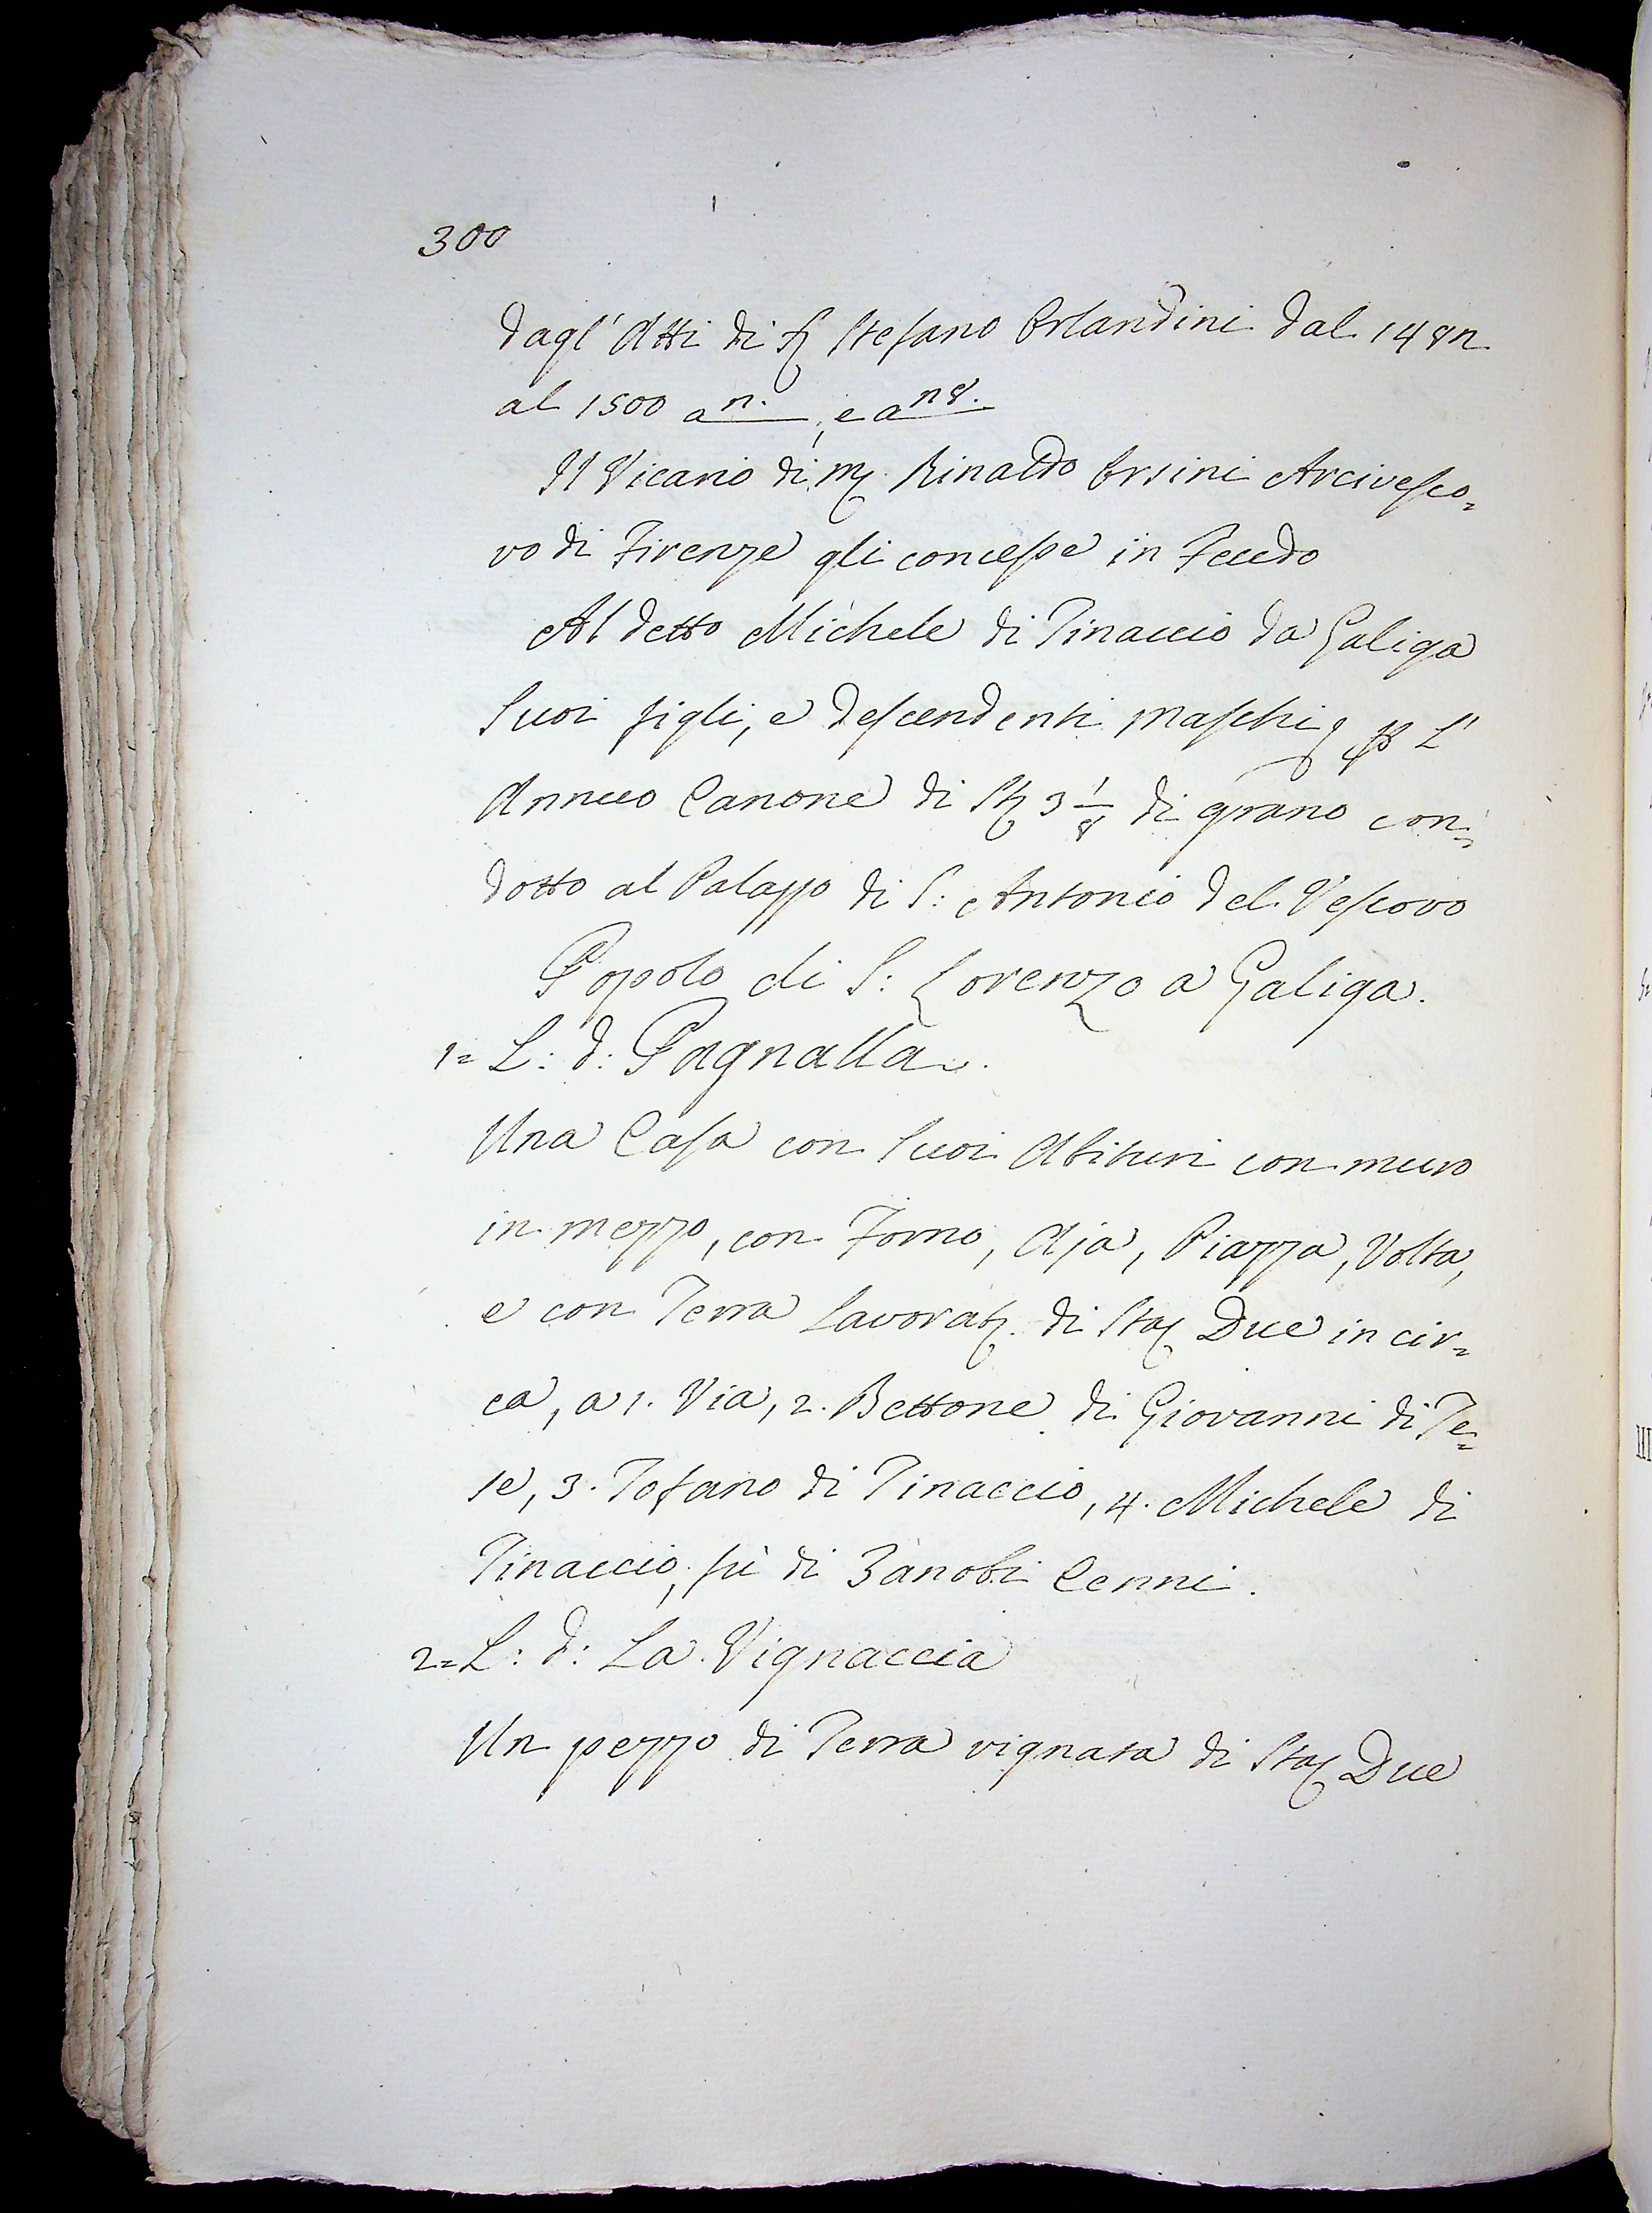 300
dagl' Atti di S. Stefano Orlandini dal 1482
al 1500 a 2. , e a 28.
Il Vicario di M. Rinaldo Orsini Arcivesco=
vo di Firenze gli concesse in Feudo
Al detto Michele di Pinaccio da Galiga
Suoi figli, e descendenti maschi p L'
Annuo Canone di St. 3 1/8 di grano con=
dotto al Palazzo di S: Antonio del Vescovo
Popolo di S: Lorenzo a Galiga.
1= L: d: Pagnalla.
Una Casa con Suoi Abituri con muro
in mezzo, con Forno, Aja, Piazza, Volta,
e con Terra Lavorat. di Sta. Due in cir=
ca, a 1. Via, 2. Bettone di Giovanni di Te=
se, 3. Tofano di Pinaccio, 4. Michele di
Pinaccio, fù di Zanobi Cenni.
2= L: d: La Vignaccia
Un pezzo di Terra vignata di Sta. Due